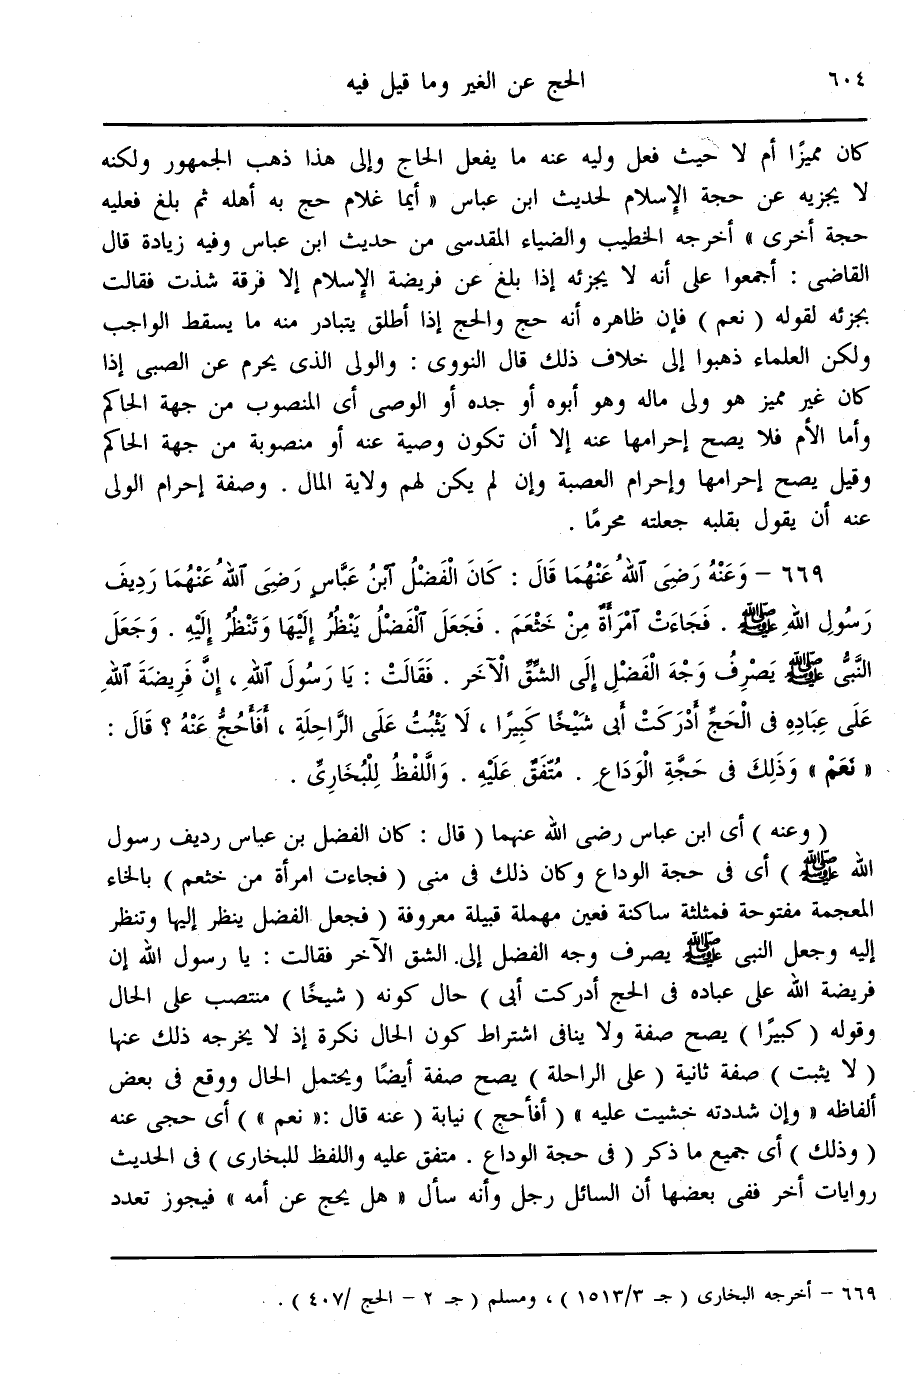 ٦٠٤
الحج عن الغير وما قيل فيه
كان مميزًا أم لا حيث فعل وليه عنه ما يفعل الحاج وإلى هذا ذهب الجمهور ولكنه
لا يجزيه عن حجة الإسلام لحديث ابن عباس « أيما غلام حج به أهله ثم بلغ فعليه
حجة أخرى » أخرجه الخطيب والضياء المقدسى من حديث ابن عباس وفيه زيادة قال
القاضى : أجمعوا على أنه لا يجزئه إذا بلغ عن فريضة الإسلام إلا فرقة شذت فقالت
يجزئه لقوله ( نعم ) فإن ظاهره أنه حج والحج إذا أطلق يتبادر منه ما يسقط الواجب
ولكن العلماء ذهبوا إلى خلاف ذلك قال النووى : والولى الذى يحرم عن الصبى إذا
كان غير مميز هو ولى ماله وهو أبوه أو جده أو الوصى أى المنصوب من جهة الحاكم
وأما الأم فلا يصح إحرامها عنه إلا أن تكون وصية عنه أو منصوبة من جهة الحاكم
وقيل يصح إحرامها وإحرام العصبة وإن لم يكن لهم ولاية المال . وصفة إحرام الولى
عنه أن يقول بقلبه جعلته محرمًا .
٦٦٩ – وَعَنْهُ رَضِىَ ٱللهُ عَنْهُمَا قَالَ : كَانَ الْفَضْلُ ٱبْنُ عَبَّاسٍ رَضِىَ ٱللهُ عَنْهُمَا رَدِيفَ
رَسُولِ اللهِ ﷺ . فَجَاءَتْ ٱمْرَأَةٌ مِنْ خَثْعَمَ . فَجَعَلَ ٱلْفَضْلُ يَنْظُرُ إِلَيْهَا وَتَنْظُرُ إِلَيْهِ . وَجَعَلَ
النَّبىُّ ﷺ يَصْرِفُ وَجْهَ الْفَضْلِ إِلَى الشِّقِّ الْآخَرِ . فَقَالَتْ : يَا رَسُولَ ٱللهِ ، إِنَّ فَرِيضَةَ ٱللهِ
عَلَى عِبَادِهِ فى الْحَجِّ أَدْرَكَتْ أَبى شَيْخًا كَبِيرًا ، لَا يَثْبُتُ عَلَى الرَّاحِلَةِ ، أَفَأَحُجُّ عَنْهُ ؟ قَالَ :
« نَعَمْ » وَذَلِكَ فى حَجَّةِ الْوَدَاعِ . مُتَّفَقٌ عَلَيْهِ . وَاللَّفْظُ لِلْبُخَارِىِّ .
( وعنه ) أى ابن عباس رضى الله عنهما ( قال : كان الفضل بن عباس رديف رسول
الله ﷺ ) أى فى حجة الوداع وكان ذلك فى منى ( فجاءت امرأة من خثعم ) بالخاء
المعجمة مفتوحة فمثلثة ساكنة فعين مهملة قبيلة معروفة ( فجعل الفضل ينظر إليها وتنظر
إليه وجعل النبى ﷺ يصرف وجه الفضل إلى الشق الآخر فقالت : يا رسول الله إن
فريضة الله على عباده فى الحج أدركت أبى ) حال كونه ( شيخًا ) منتصب على الحال
وقوله ( كبيرًا ) يصح صفة ولا ينافى اشتراط كون الحال نكرة إذ لا يخرجه ذلك عنها
( لا يثبت ) صفة ثانية ( على الراحلة ) يصح صفة أيضًا ويحتمل الحال ووقع فى بعض
ألفاظه « وإن شددته خشيت عليه » ( أفأحج ) نيابة ( عنه قال :« نعم » ) أى حجى عنه
( وذلك ) أى جميع ما ذكر ( فى حجة الوداع . متفق عليه واللفظ للبخارى ) فى الحديث
روايات أخر ففى بعضها أن السائل رجل وأنه سأل « هل يحج عن أمه » فيجوز تعدد
٦٦٩ – أخرجه البخارى ( جـ ٣/١٥١٣ ) ، ومسلم ( جـ ٢ – الحج /٤٠٧ ) .